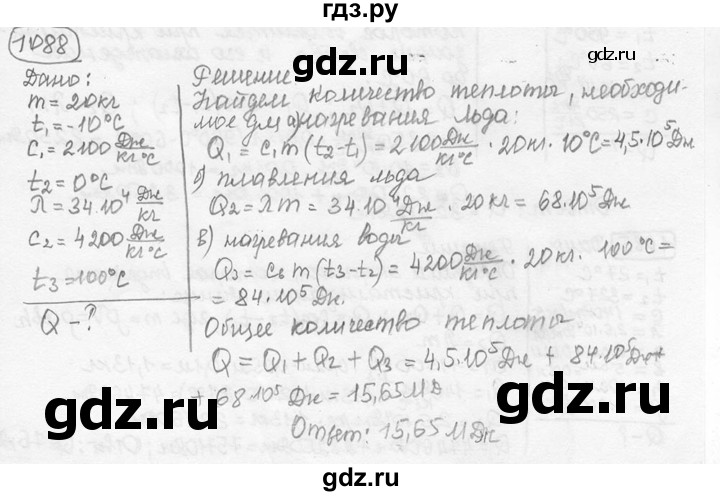 гдз.ру
1088
Дано:
m = 20 кг
t₁ = -10°C
c₁ = 2100 Дж/кг°C
t₂ = 0°C
λ = 34·10⁴ Дж/кг
c₂ = 4200 Дж/кг°C
t₃ = 100°C
Q - ?
Решение
Найдем количество теплоты, необходи-
мое для а) нагревания льда:
Q₁ = c₁m (t₂-t₁) = 2100 Дж/кг°C · 20 кг · 10°C = 4,5·10⁵ Дж
б) плавления льда
Q₂ = λm = 34·10⁴ Дж/кг · 20 кг = 68·10⁵ Дж
в) нагревания воды
Q₃ = cв m (t₃-t₂) = 4200 Дж/кг°C · 20 кг · 100°C =
= 84·10⁵ Дж.
Общее количество теплоты
Q = Q₁ + Q₂ + Q₃ = 4,5·10⁵ Дж + 84·10⁵ Дж +
+ 68·10⁵ Дж = 15,65 МД
Ответ: 15,65 МДж.
gdz.ru
gdz.ru
gdz.ru
gdz.ru
gdz.ru
gdz.ru
gdz.ru
gdz.ru
gdz.ru
gdz.ru